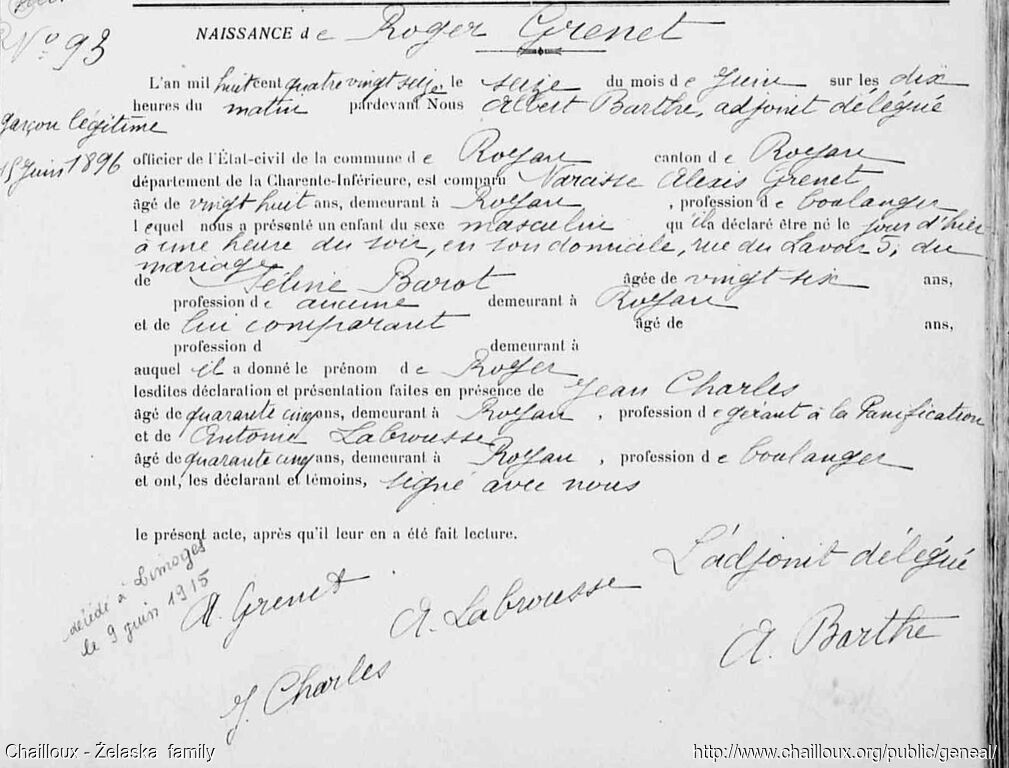 NAISSANCE de Roger Grenet
No 93
L'an mil huit cent quatre vingt seize, le seize du mois de Juin sur les dix
heures du matin pardevant Nous Albert Barthe, adjoint délégué
garçon légitime
15 Juin 1896
officier de l'État-civil de la commune de Royan canton de Royan
département de la Charente-Inférieure, est comparu Narcisse Alexis Grenet
âgé de vingt huit ans, demeurant à Royan, profession de boulanger
lequel nous a présenté un enfant du sexe masculin qu'il a déclaré être né le jour d'hier
à une heure du soir, en son domicile, rue du Lavoir 5, du
mariage
de Féline Barot âgée de vingt six ans,
profession de aucune demeurant à Royan
et de lui comparant âgé de ans,
profession d demeurant à
auquel il a donné le prénom de Roger
lesdites déclaration et présentation faites en présence de Jean Charles
âgé de quarante cinq ans, demeurant à Royan, profession de gérant à la Panification
et de Antoine Labrousse
âgé de quarante cinq ans, demeurant à Royan, profession de boulanger
et ont, les déclarant et témoins, signé avec nous
le présent acte, après qu'il leur en a été fait lecture.
décédé à Limoges
le 9 juin 1915
L'adjoint délégué
A. Grenet
A. Labrousse
A. Barthe
J. Charles
Chailloux - Żelaska family
http://www.chailloux.org/public/geneal/